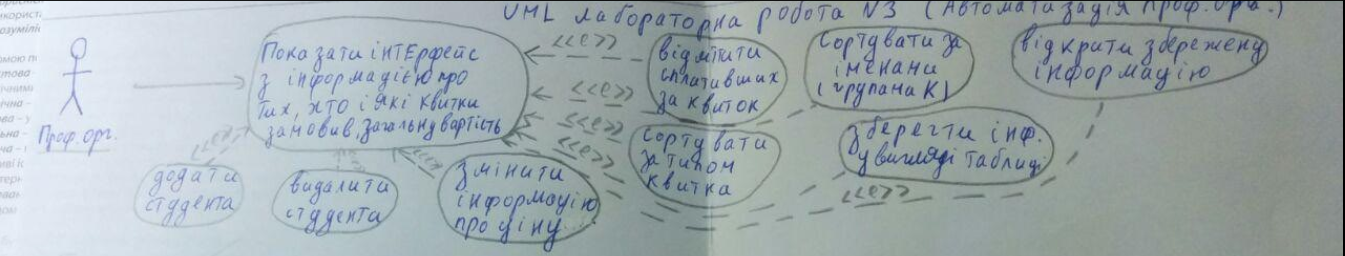 UML лабораторна робота №3 (Автоматизація Проф.орга.)
Проф.орг.
Показати інтЕрфейс
з інформацією про
тих, хто і які квитки
замовив, загальну вартість
<<e>>
відмітити
сплативших
за квиток
Сортувати за
іменами
(групами)
відкрити збережену
інформацію
<<e>>
<<e>>
<<e>>
<<e>>
Сортувати
за типом
квитка
зберегти інф.
у вигляді таблиці
<<e>>
додати
студента
видалити
студента
змінити
інформацію
про ціну...